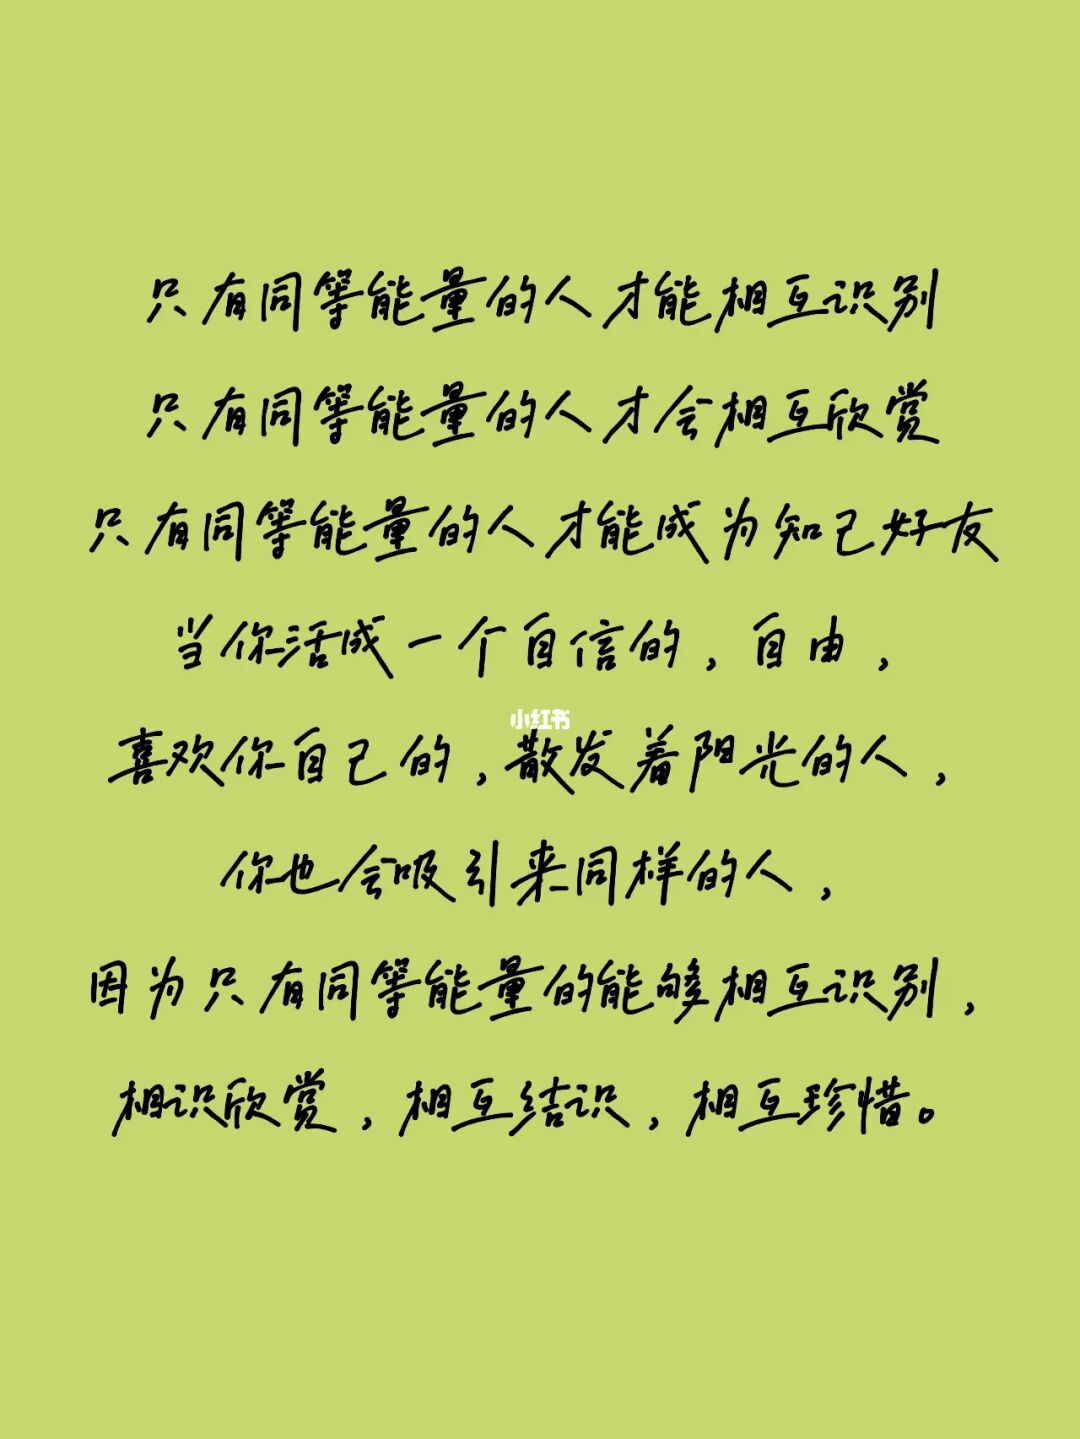 只有同等能量的人才能相互识别
只有同等能量的人才会相互欣赏
只有同等能量的人才能成为知己好友
当你活成一个自信的，自由，
小红书
喜欢你自己的，散发着阳光的人，
你也会吸引来同样的人，
因为只有同等能量的能够相互识别，
相识欣赏，相互结识，相互珍惜。